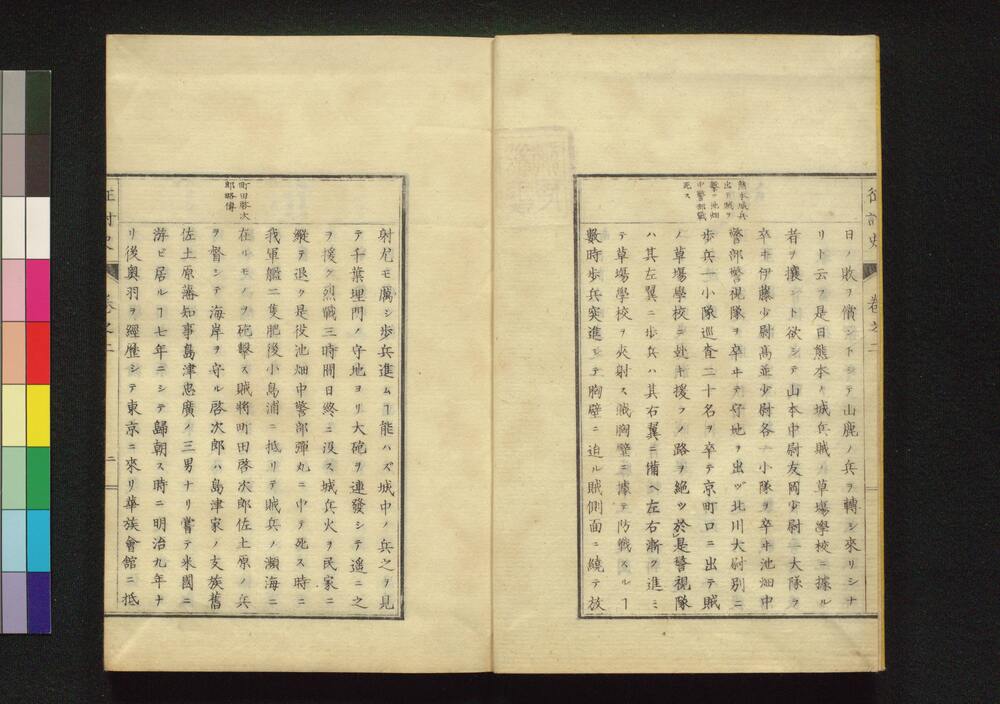 征討史 卷之二
日ノ敗ヲ償ントシテ山鹿ノ兵ヲ轉シ來リシナ
リト云フ是日熊本ノ城兵賊ノ草塲學校ニ據ル
者ヲ攘ント欲シテ山本中尉友岡少尉一大隊ヲ
卒ヰ伊藤少尉髙並少尉各一小隊ヲ卒ヰ池畑中
熊本城兵
出テ賊ヲ
擊ツ池畑
中警部戰
死ス
警部警視隊ヲ卒ヰテ守地ヲ出ヅ北川大尉別ニ
歩兵一小隊巡査二十名ヲ卒テ京町口ニ出テ賊
ノ草塲學校ニ赴キ援フノ路ヲ絶ツ於是警視隊
ハ其左翼ニ歩兵ハ其右翼ニ備ヘ左右漸ク進ミ
テ草塲學校ヲ夾射ス賊胸壁ニ據テ防戰スルヿ
數時歩兵突進シテ胸壁ニ迫ル賊側面ニ繞テ放
射尤モ厲シ歩兵進ムヿ能ハズ城中ノ兵之ヲ見
テ千葉埋門ノ守地ヨリ大砲ヲ連發シテ遙ニ之
ヲ援ク烈戰三時間日終ニ沒ス城兵火ヲ民家ニ
縱テ退ク是役池畑中警部彈丸ニ中テ死ス時ニ
我軍艦二隻肥後小島浦ニ抵リテ賊兵ノ瀕海ニ
町田啓次
郎略傳
在ルモノヲ砲擊ス賊將町田啓次郎佐土原ノ兵
ヲ督シテ海岸ヲ守ル啓次郎ハ島津家ノ支族舊
佐土原藩知事島津忠廣ノ三男ナリ嘗テ米國ニ
游ビ居ルヿ七年ニシテ歸朝ス時ニ明治九年ナ
リ後奥羽ヲ經歴シテ東京ニ來リ華族會館ニ抵
征討史 卷之二 二